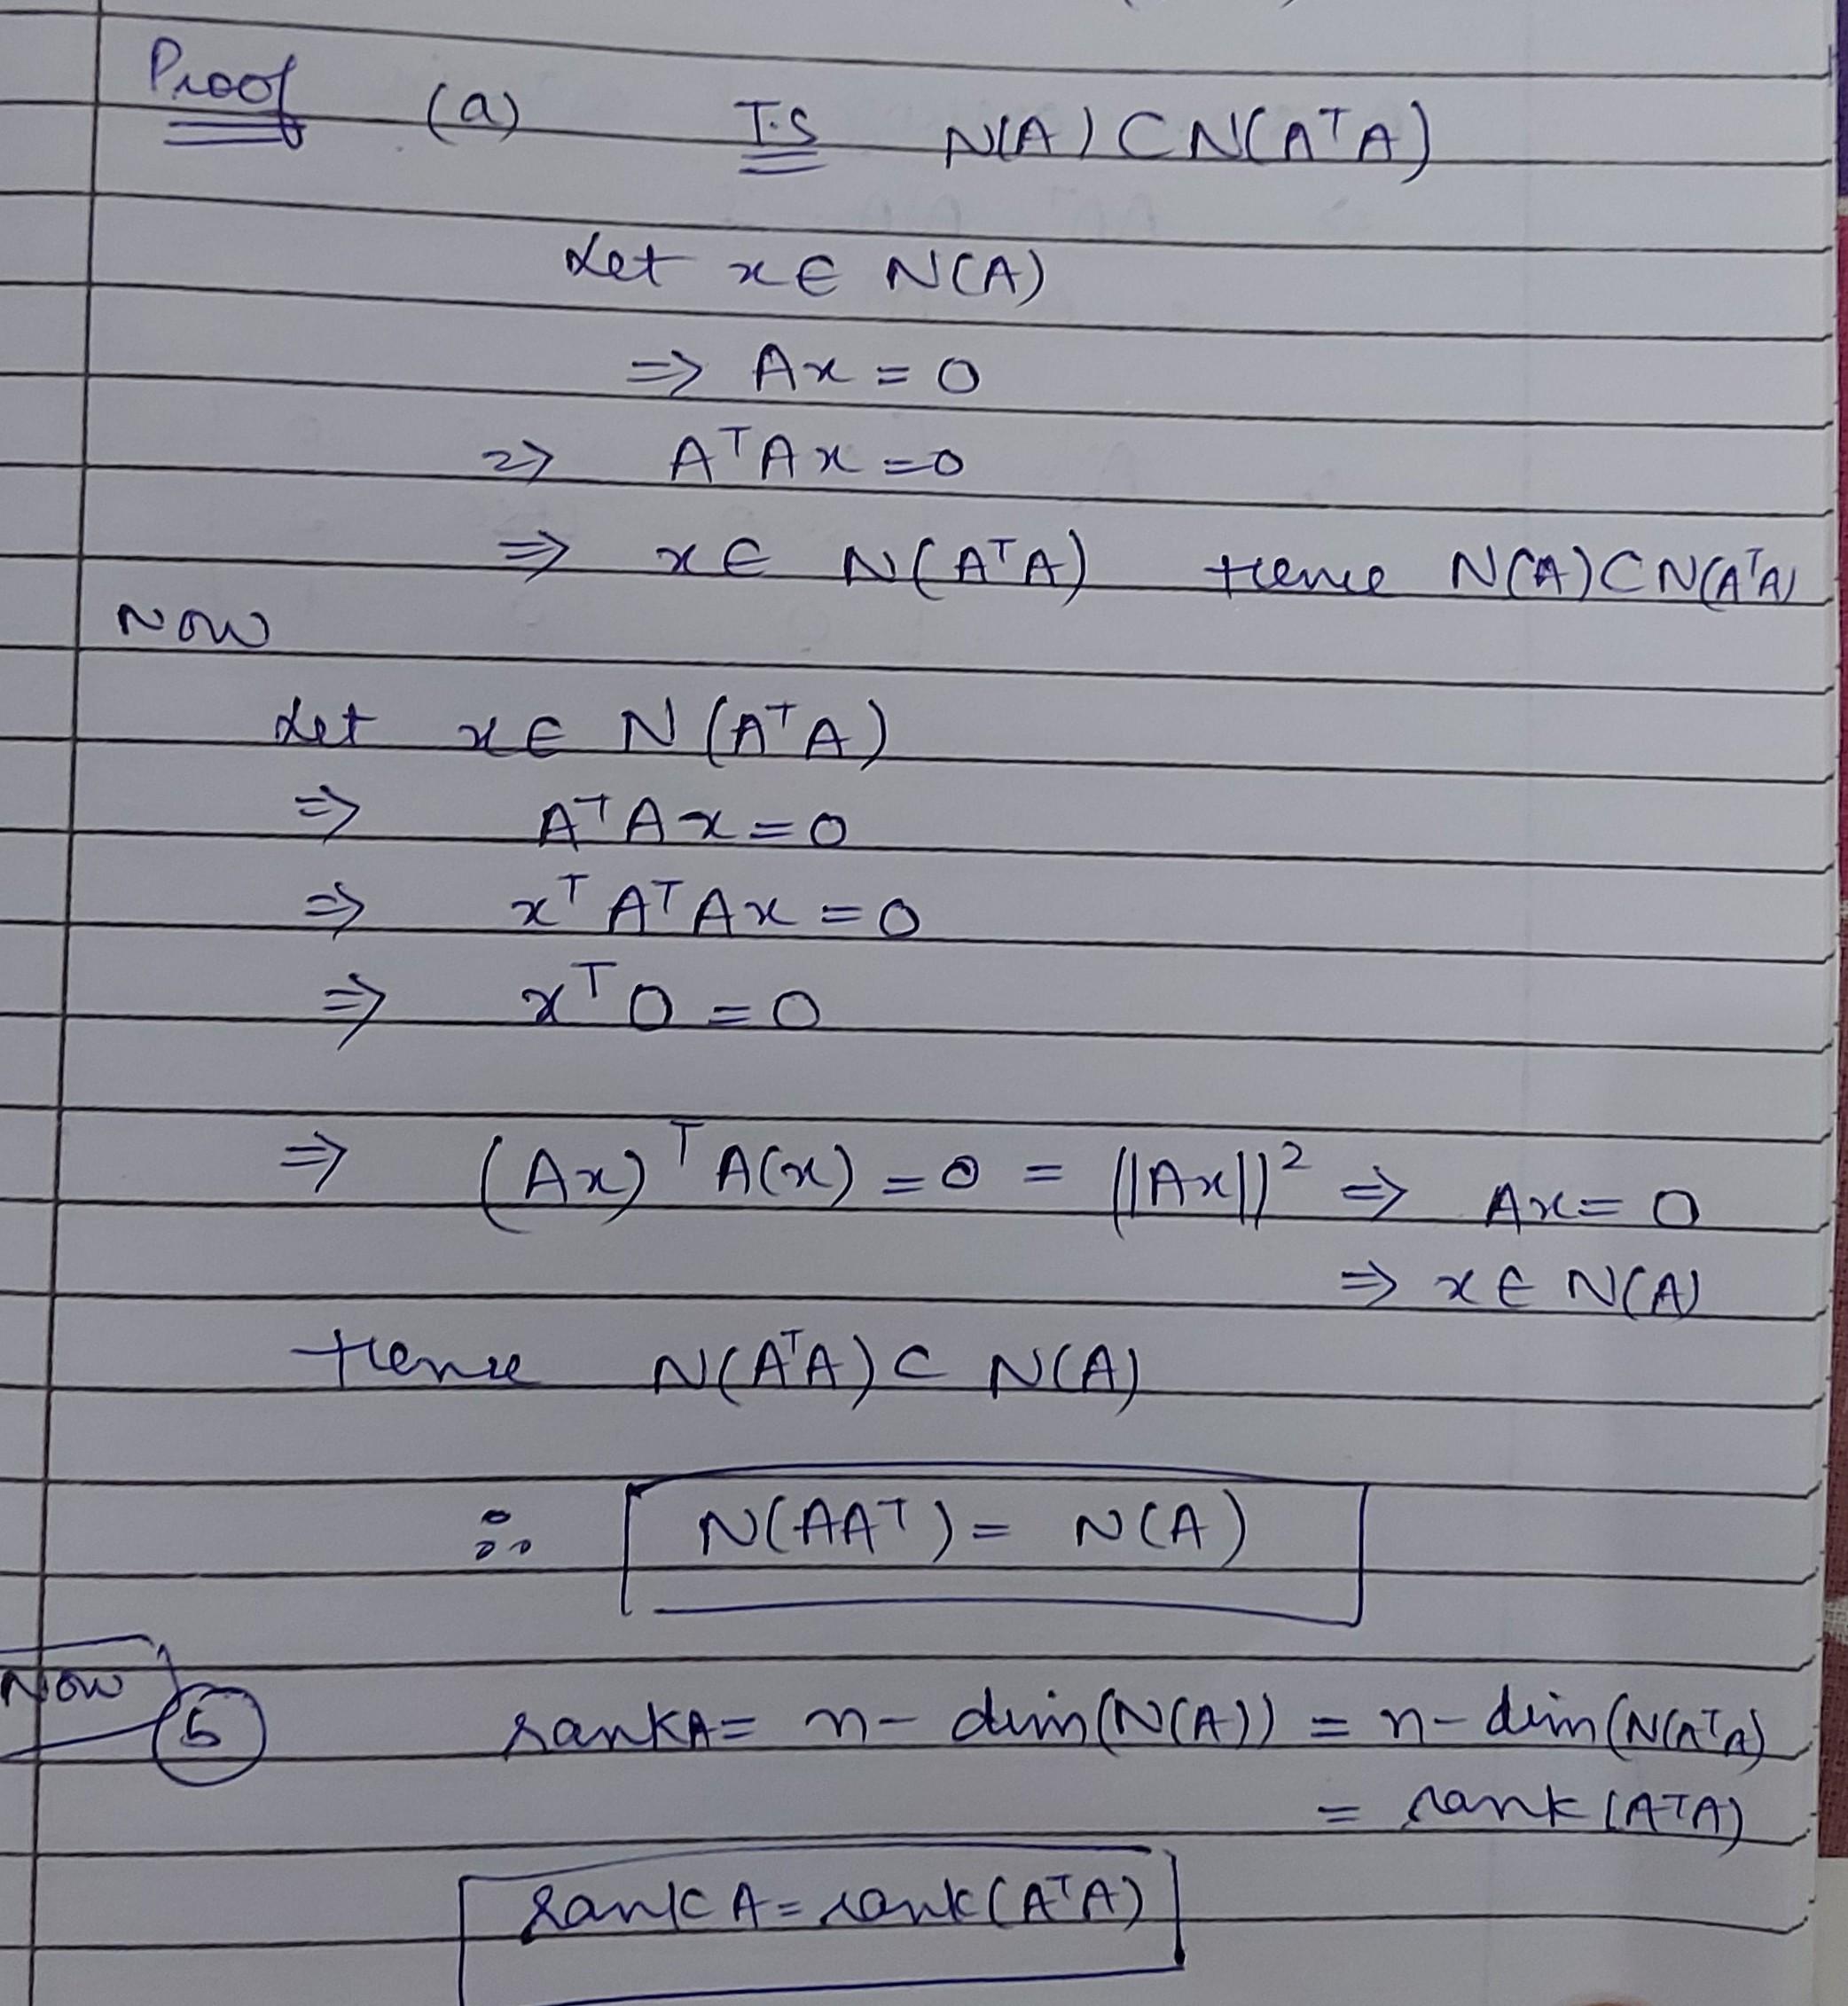 Proof (a) T.S N(A) ⊂ N(AᵀA)
Let x ∈ N(A)
⇒ Ax = 0
⇒ AᵀAx = 0
⇒ x ∈ N(AᵀA) Hence N(A) ⊂ N(AᵀA)
Now
Let x ∈ N(AᵀA)
⇒ AᵀAx = 0
⇒ xᵀAᵀAx = 0
⇒ xᵀ0 = 0
⇒ (Ax)ᵀA(x) = 0 = (||Ax||)² ⇒ Ax = 0
⇒ x ∈ N(A)
Hence N(AᵀA) ⊂ N(A)
∴ N(AAᵀ) = N(A)
Now b rank A = n - dim(N(A)) = n - dim(N(AᵀA)
= rank(AᵀA)
Rank A = rank(AᵀA)